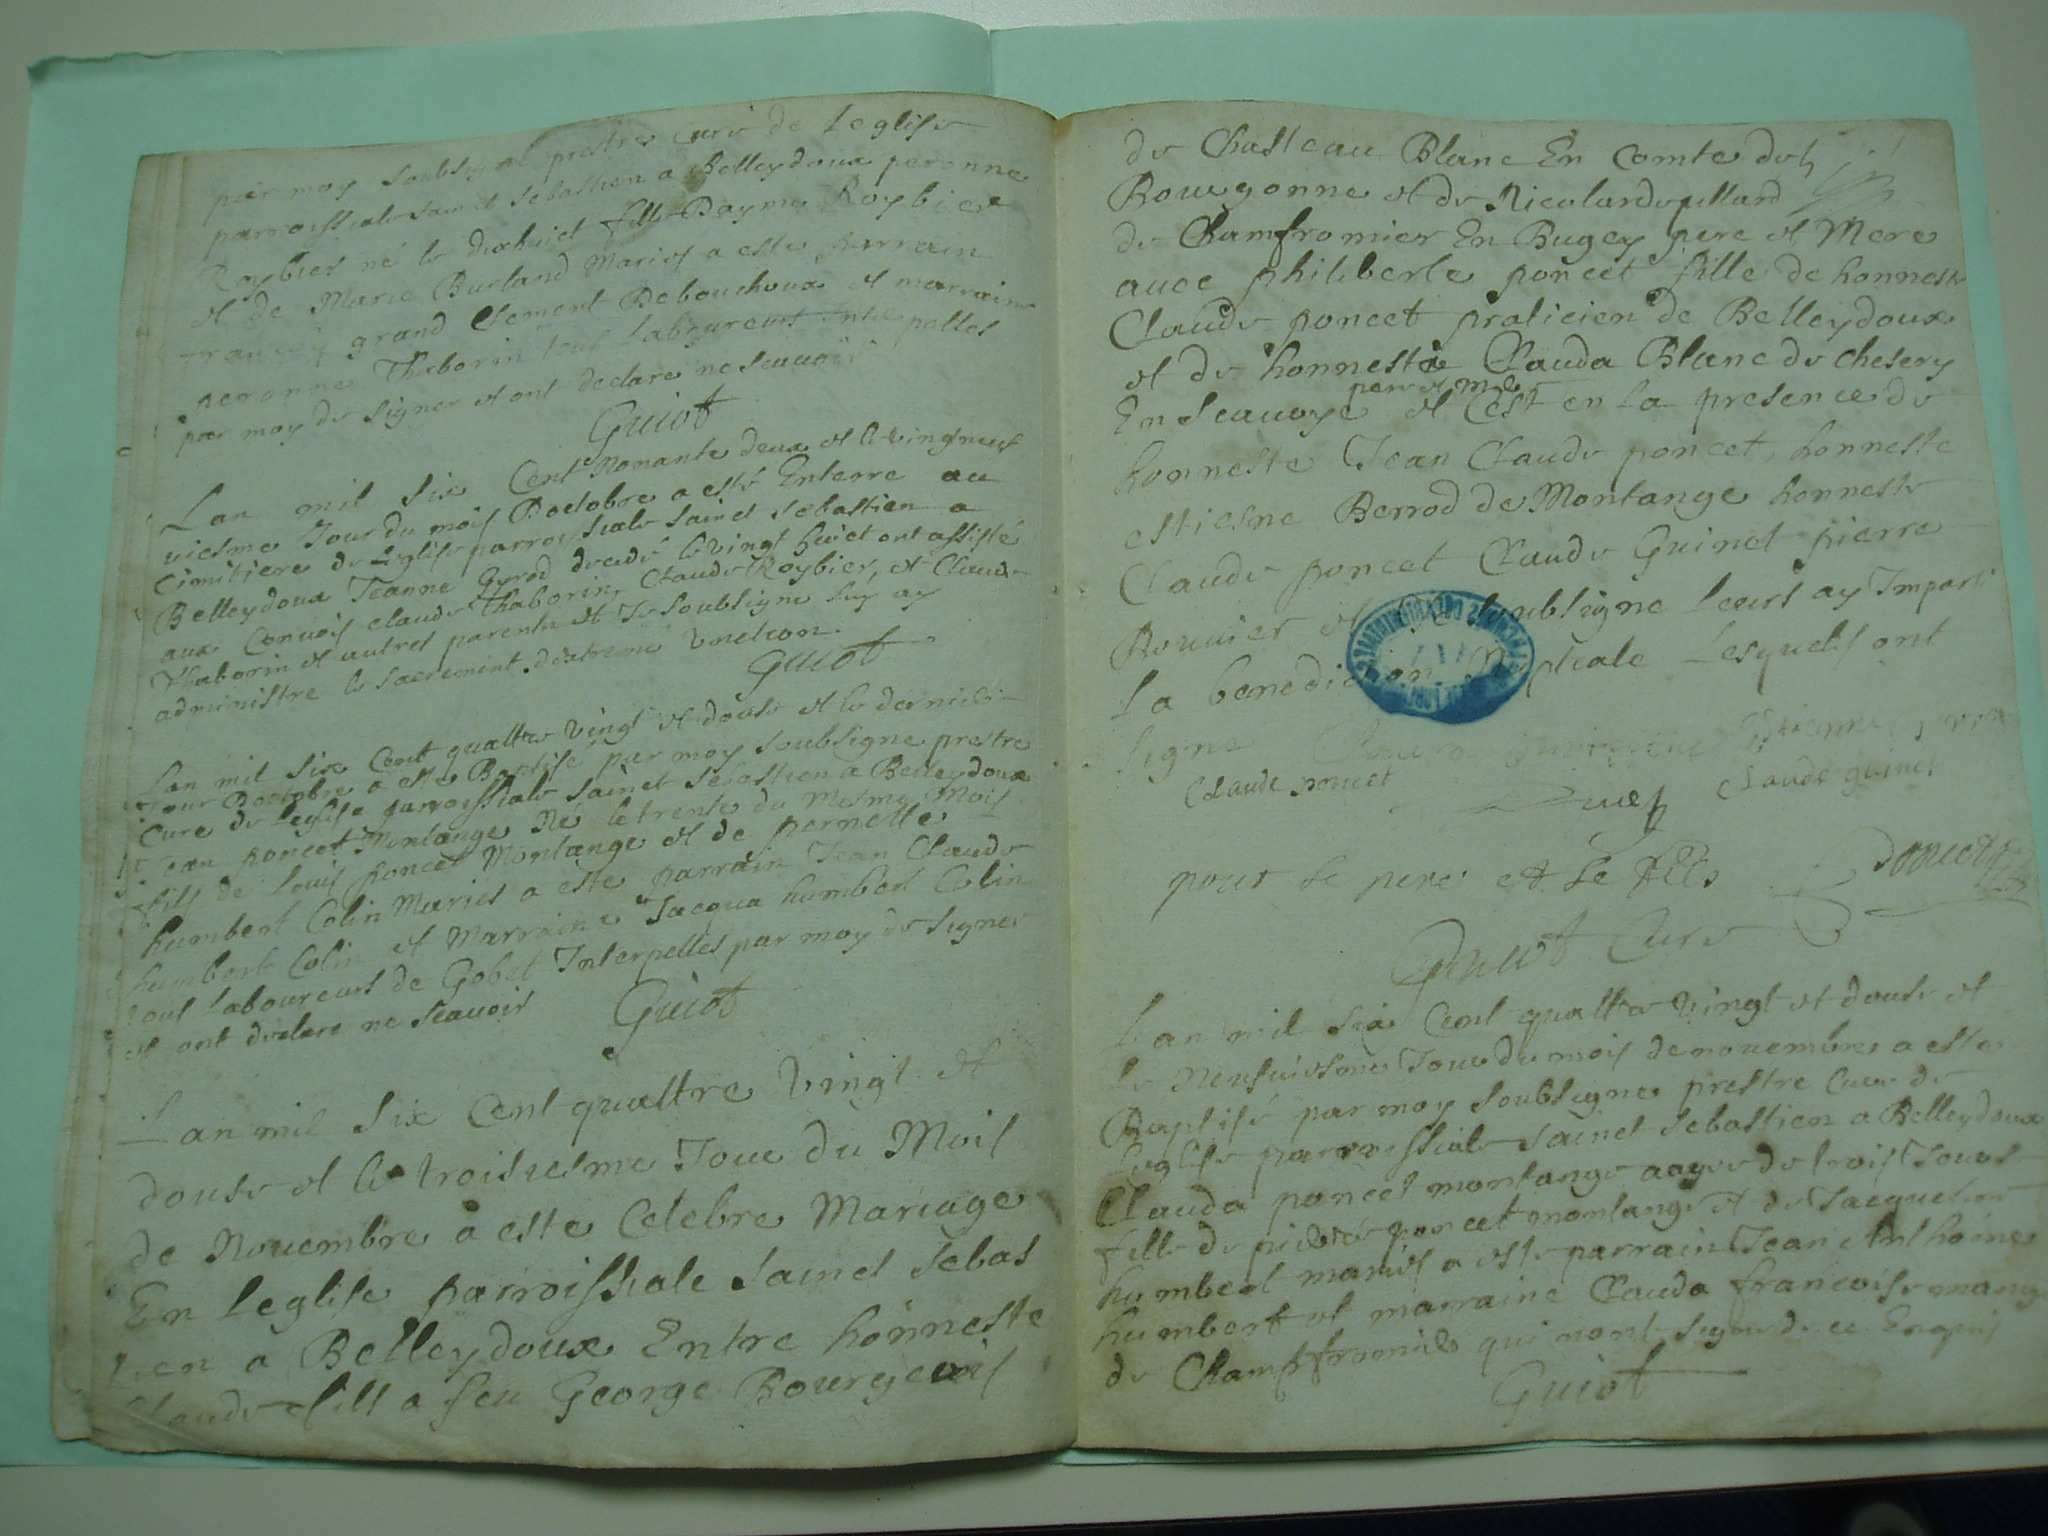 par moy soubsigné prestre curé de Leglise
parroissiale sainct sebastien a Belleydoux peronne
Roybier né le dixhuict fille Dayme Roybier
et de Marie Burland Mariés a este parrain
francois grand Clement Debouchoux et marraine
peronne Thaborin tous Laboureurs Interpelles
par moy de signer et ont declare ne scauoir
Guiot
Lan mil six Cent Nonante deux et le vingtneuf
viesme Jour du mois Doctobre a esté Enterre au
Cimitiere de Leglise parroissiale sainct sebastien a
Belleydoux Jeanne Gyrod le vingt huict ont assisté
aux Convois claude Thaborin, Claude Roybier, et Claude
Thaborin et autres parents et Je soubsigne luy ay
administre le sacrement dextreme Vnction.
Guiot
Lan mil six Cent quattre vingt et douse et le dernier
Jour Doctobre a este Baptisé par moy soubsigne prestre
Cure de Leglise parroissiale sainct sebastien a Belleydoux
Jean poncet Montange Né le trense du Mesme Mois
fils de Louis poncet Montange et de pernette
humbert Colin Mariés a este parrain Jean Claude
humbert Colin et Marraine Jacqua humbert Colin
tous Laboureurs de Gobet Interpelles par moy de signer
et ont declare ne scauoir Guiot
Lan mil six Cent quattre vingt et
douse et le troisiesme Jour du Mois
de Nouembre a este Celebre Mariage
En Leglise parroissiale sainct sebas
tien a Belleydoux Entre honneste
Claude fils a feu George Bourgeois
de Chasteau Blanc En Comte de
Bourgonne et de Nicolarde
de Chamfromier En Bugey pere et Mere
auec philiberte poncet fille de honneste
Claude poncet praticien de Belleydoux
et de honneste Clauda Blanc de Chesery
pere et mere
En scauoye et Cest en la presence de
honneste Jean Claude poncet, honneste
estiesne Berrod de Montange honneste
Claude poncet Claude Guinet pierre
Rouuier et Je soubsigne Leurs ay Imparti
La benediction Lesquels ont
signe
Claude poncet Claude guinet
pour le pere et le fils poncet
Guiot Cure
Lan mil six Cent quattre vingt et douse et
le Neufuiesme Jour du mois de nouembre a este
Baptisé par moy soubsigne prestre Cure de
Leglise parroissiale sainct sebastien a Belleydoux
Clauda poncet montange aagee de trois Jours
fille de poncet montange et de Jacqueline
humbert mariés a este parrain Jean Anthoine
humbert et marraine Clauda francoise
de Champfromier qui nont signe de ce Enquis
Guiot